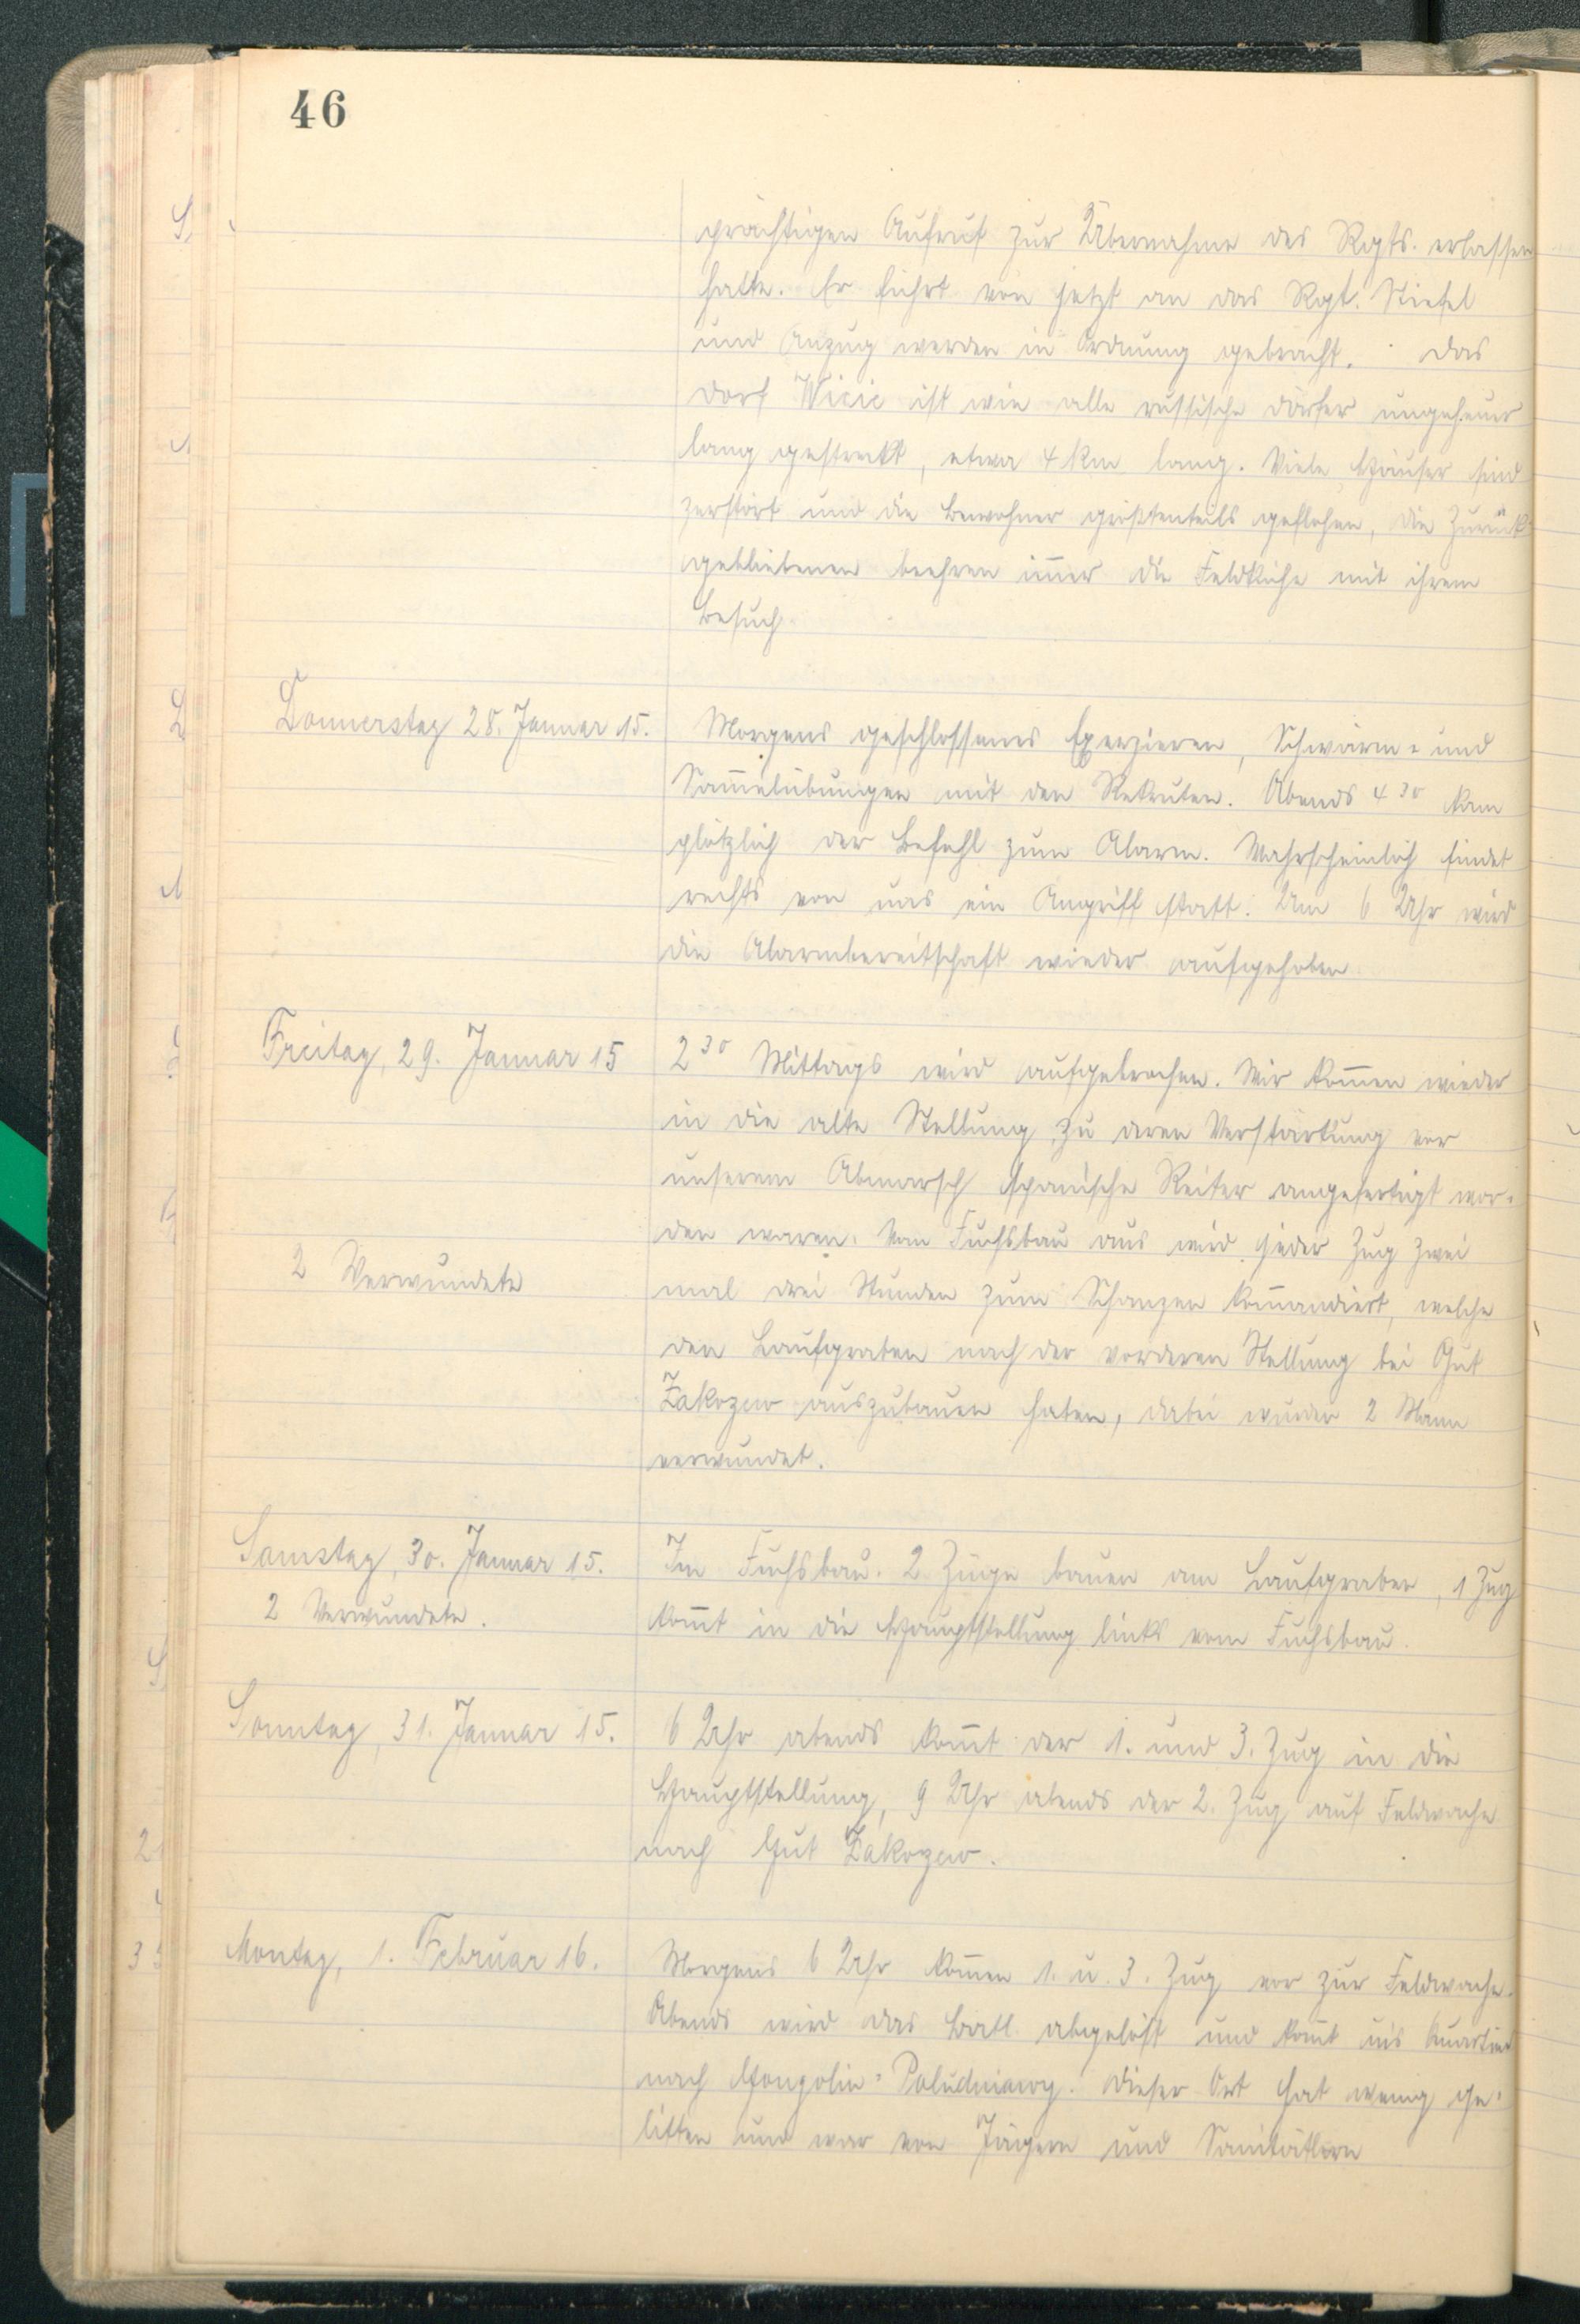 46
prächtigen Aufruf zur Übernahme des Rgts. erlassen
hatte. Er führt von jetzt an das Rgt. Stiefel
und Anzug werden in Ordnung gebracht. Das
Dorf Wicie ist wie alle russische Dörfer ungeheuer
lang gestreckt, etwa 4 km lang. Viele Häuser sind
zerstört und die Bewohner größtenteils geflohen, die Zurück
gebliebenen beehren im̅er die Feldküche mit ihrem
Besuch.
Donnerstag 28. Januar 15.
Morgens geschlossenes Exerzieren, Schwärm= und
Sam̅elübungen mit den Rekruten. Abends 4 30 kam
plötzlich der Befehl zum Alarm. Wahrscheinlich findet
rechts von uns ein Angriff statt. Um 6 Uhr wird
die Alarmbereitschaft wieder aufgehoben
Freitag, 29. Januar 15
2 30 Mittags wird aufgebrochen. Wir kom̅en wieder
in die alte Stellung, zu deren Verstärkung vor
unserem Abmarsch spanische Reiter angefertigt wor=
den waren. Vom Fuchsbau aus wird jeder Zug zwei
2 Verwundete
mal drei Stunden zum Schanzen kom̅andiert, welche
den Laufgraben nach der vorderen Stellung bei Gut
Zakrzew auszubauen haben, dabei wurden 2 Mann
verwundet.
Samstag, 30. Januar 15.
Im Fuchsbau. 2 Züge bauen am Laufgraben, 1 Zug
2 Verwundete.
kom̅t in die Hauptstellung links vom Fuchsbau.
Sonntag, 31. Januar 15.
6 Uhr abends kom̅t der 1. und 3. Zug in die
Hauptstellung, 9 Uhr abends der 2. Zug auf Feldwache
nach Gut Zakrzew.
Montag, 1. Februar 16.
Morgens 6 Uhr kom̅en 1. u. 3. Zug vor zur Feldwache.
Abends wird das Batl. abgelöst und kom̅t ins Quartier
nach Poludniowy. Dieser Ort hat wenig ge=
litten und war von Jägern und Sanitätlern